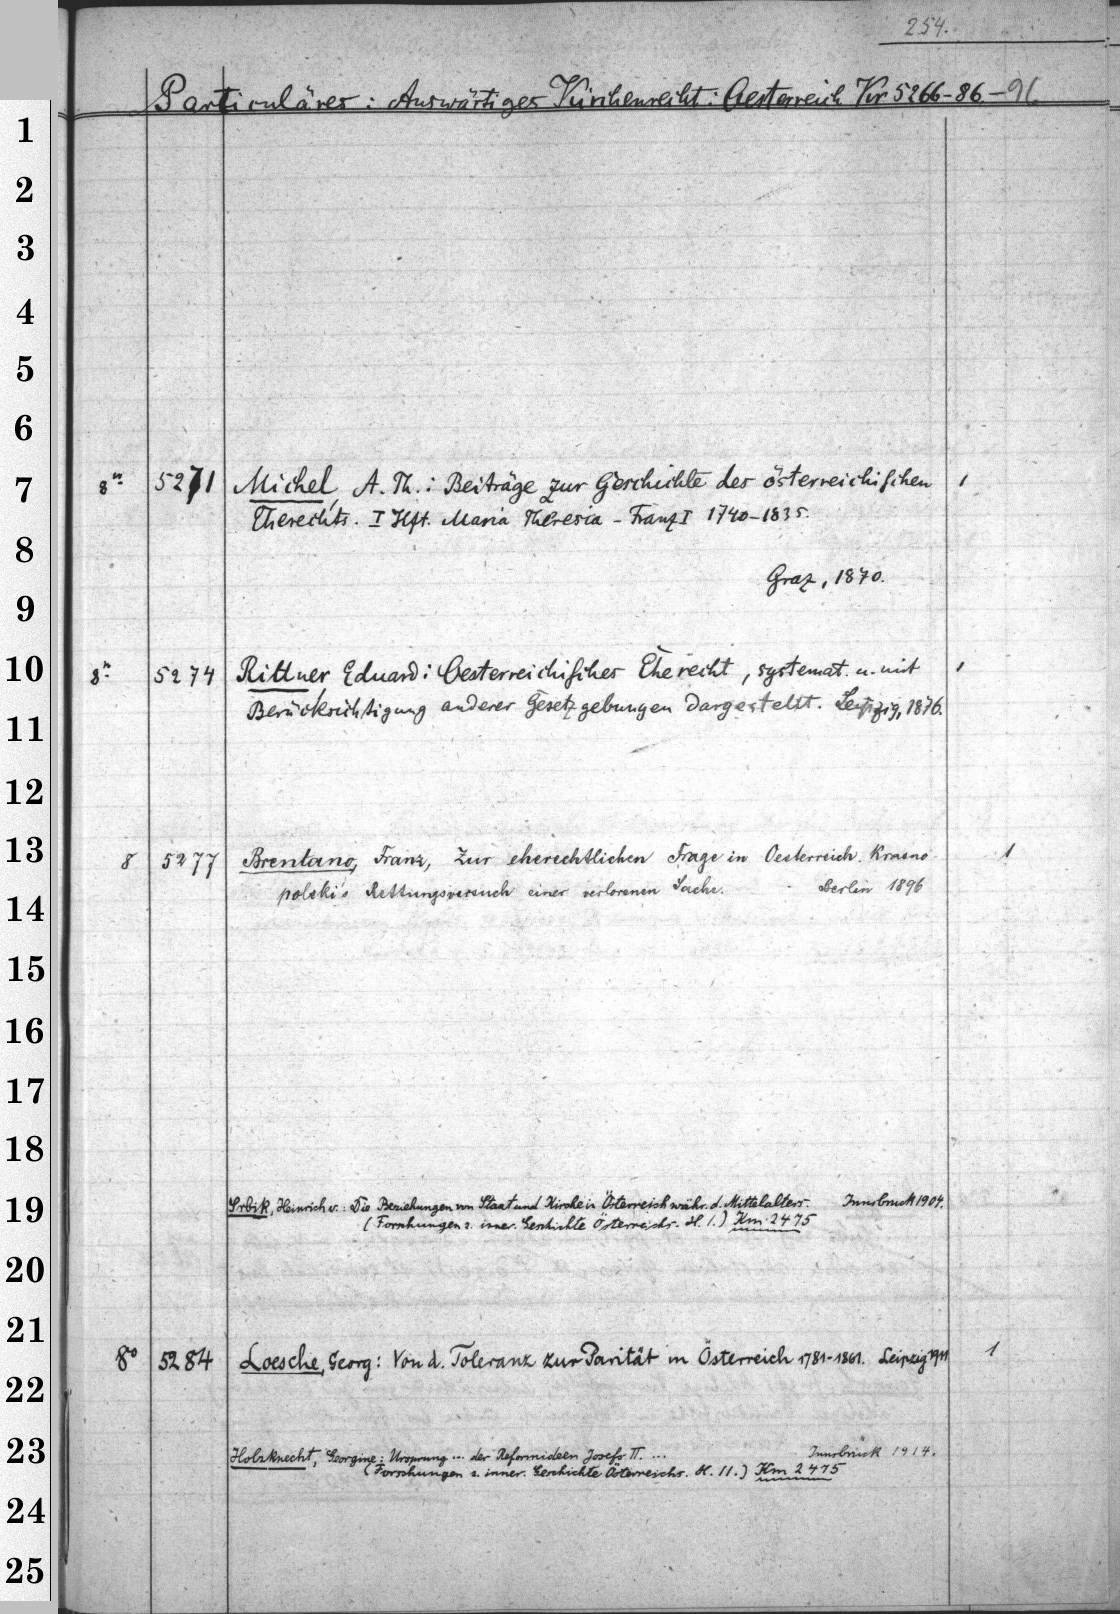 254.
Particuläres: Auswärtiges Kirchenrecht: Oesterreich Kir 5266-86-96
1
2
3
4
5
6
7 8° 5271 Michel, A. Th.: Beiträge zur Geschichte des österreichischen 1
Eherechts. I Hft. Maria Theresia - Franz I 1740-1835.
8
Graz, 1870.
9
10 8° 5274 Rittner Eduard: Oesterreichisches Eherecht, systemat. u. mit 1
Berücksichtigung anderer Gesetzgebungen dargestellt. Leipzig, 1876.
11
12
13 8 5277 Brentano, Franz, Zur eherechtlichen Frage in Oesterreich. Krasno- 1
polski's Rettungsversuch einer verlorenen Sache. Berlin 1896
14
15
16
17
18
19 Srbik, Heinrich v.: Die Beziehungen von Staat und Kirche in Österreich währ. d. Mittelalters. Innsbruck 1904.
(Forschungen z. inner. Geschichte Österreichs. H. 1.) Km 2475
20
21
8° 5284 Loesche, Georg: Von d. Toleranz zur Parität in Österreich 1781-1861. Leipzig 1911 1
22
23 Holzknecht, Georgine: Ursprung ... der Reformideen Josefs II. ... Innsbruck 1914.
(Forschungen z. inner. Geschichte Österreichs. H. 11.) Km 2475
24
25